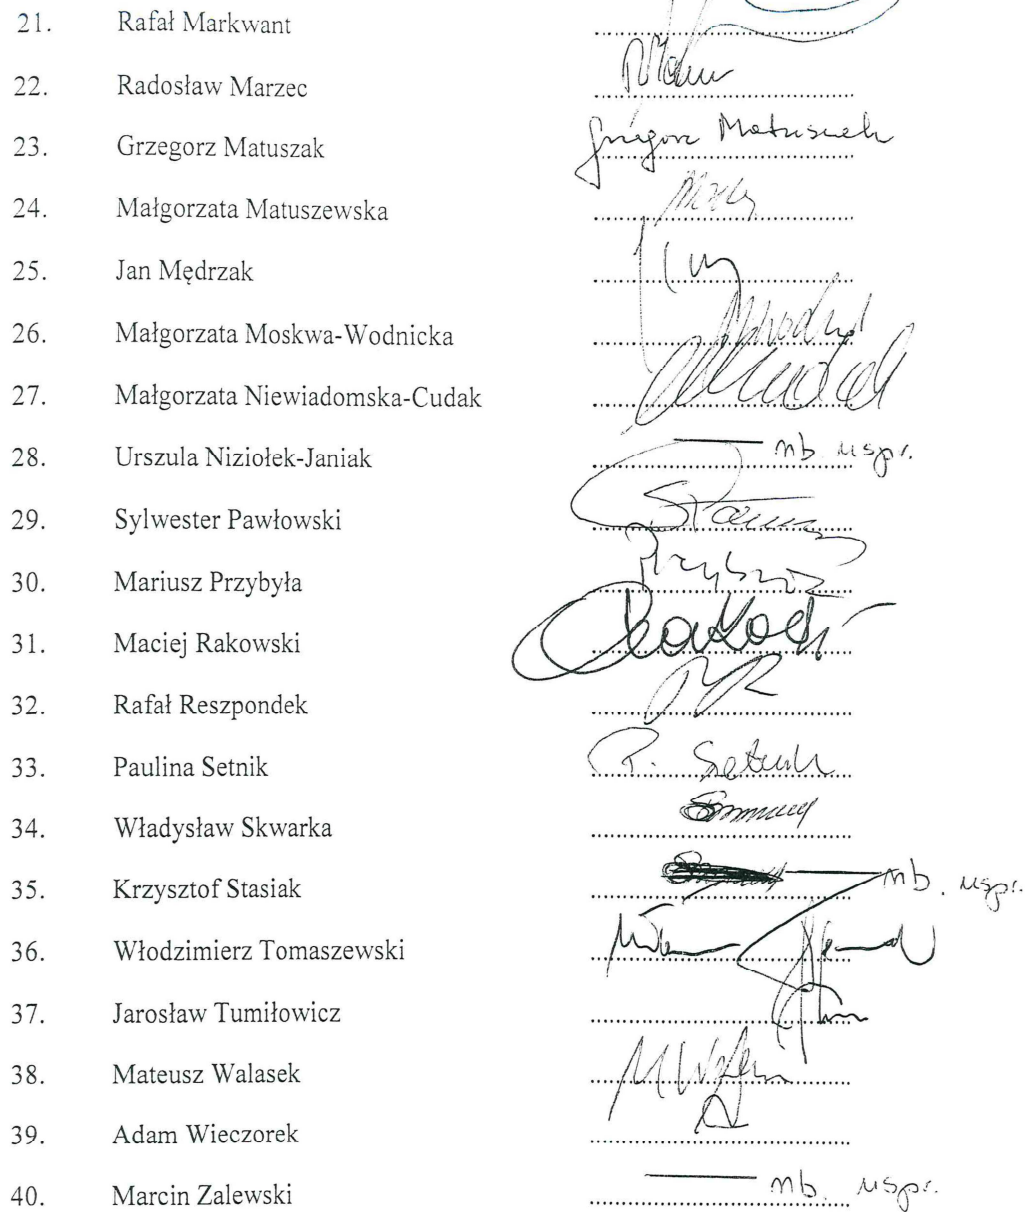 21. Rafał Markwant
22. Radosław Marzec
23. Grzegorz Matuszak Grzegorz Matuszak
24. Małgorzata Matuszewska
25. Jan Mędrzak
26. Małgorzata Moskwa-Wodnicka
27. Małgorzata Niewiadomska-Cudak
28. Urszula Niziołek-Janiak nb uspr.
29. Sylwester Pawłowski
30. Mariusz Przybyła
31. Maciej Rakowski
32. Rafał Reszpondek
33. Paulina Setnik P. Setnik
34. Władysław Skwarka
35. Krzysztof Stasiak nb. uspr.
36. Włodzimierz Tomaszewski
37. Jarosław Tumiłowicz
38. Mateusz Walasek
39. Adam Wieczorek
40. Marcin Zalewski nb. uspr.